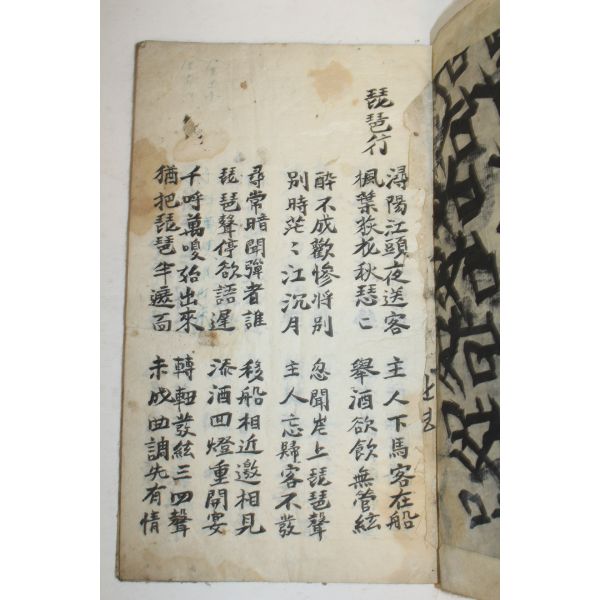 琵琶行
潯陽江頭夜送客
楓葉荻花秋瑟〻
主人下馬客在船
舉酒欲飮無管絃
醉不成歡慘將別
別時茫〻江沉月
忽聞岸上琵琶聲
主人忘歸客不發
尋常暗聞彈者誰
琵琶聲停欲語遲
移船相近邀相見
添酒回燈重開宴
千呼萬喚始出來
猶把琵琶半遮面
轉軸發絃三四聲
未成曲調先有情